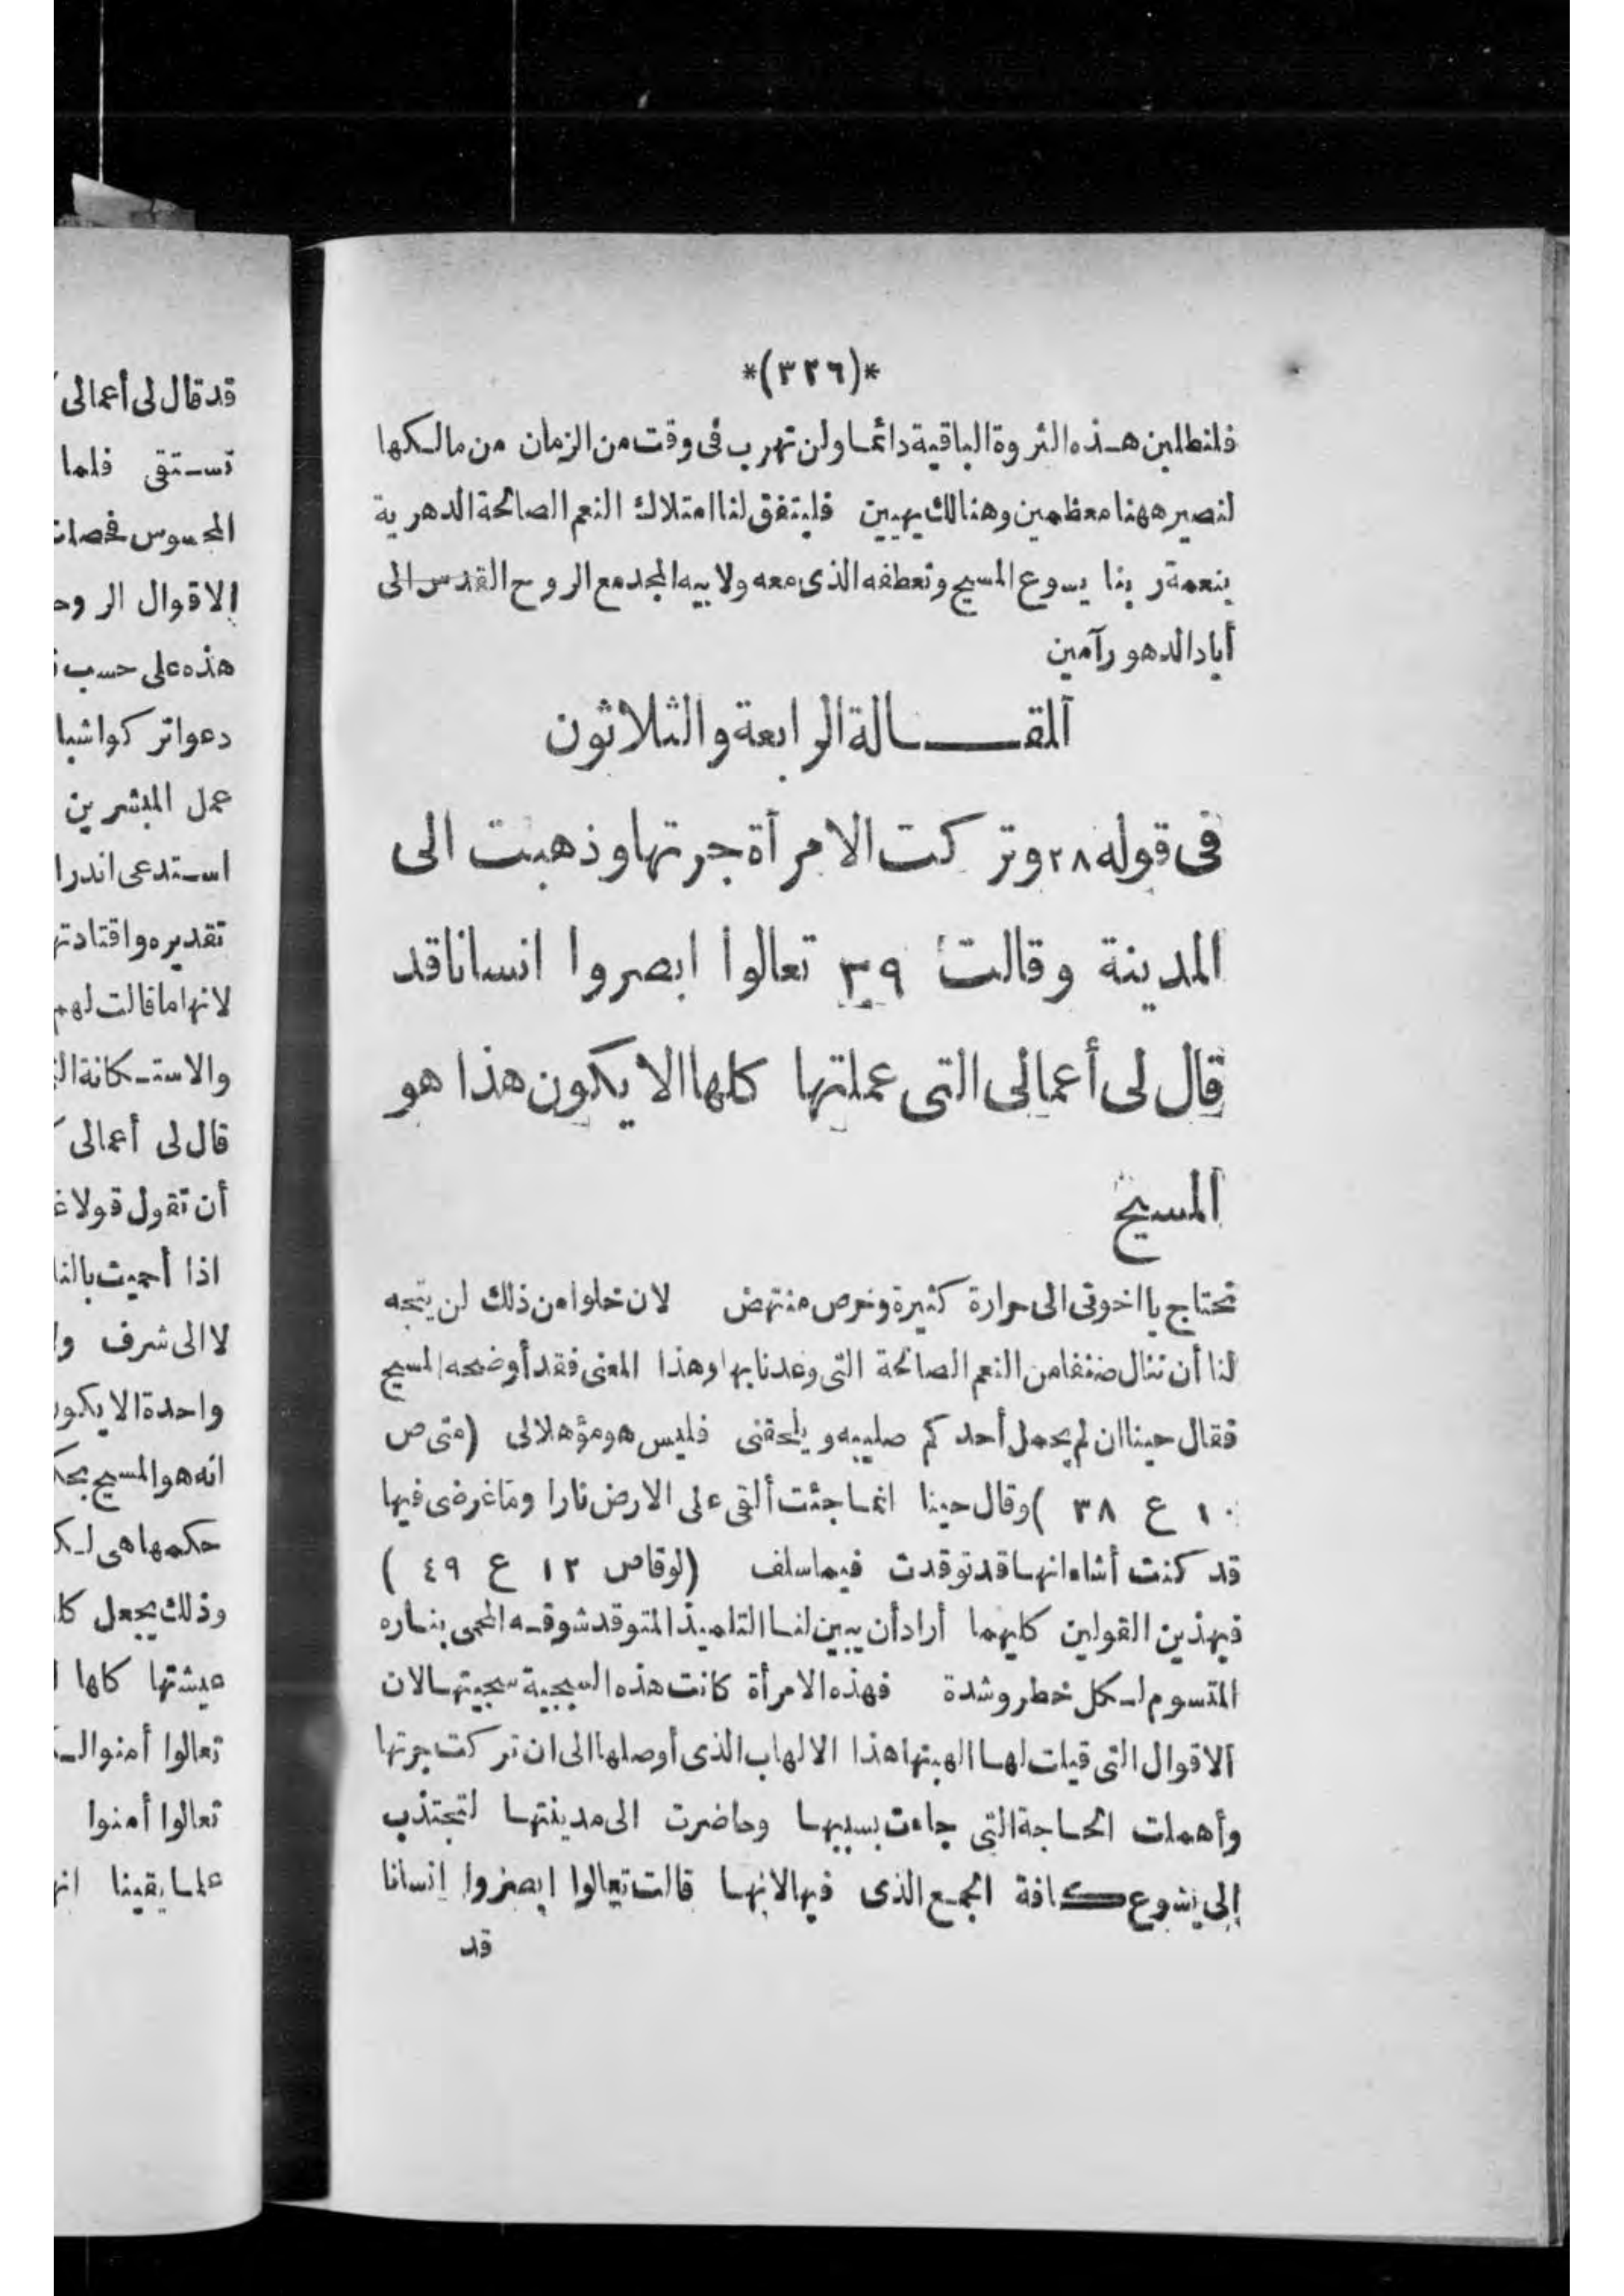 *(٣٢٦)*
فلنطلبن هذه الثروة الباقية دائما ولن تهرب فى وقت من الزمان من مالكها
لنصير ههنا معظمين وهنالك بهيين فليتفق لنا امتلاك النعم الصالحة الدهرية
بنعمة ربنا يسوع المسيح وتعطفه الذى معه ولابيه المجد مع الروح القدس الى
أباد الدهور آمين
المقالة الرابعة والثلاثون
فى قوله ٢٨ وتركت الامرأة جرتها وذهبت الى
المدينة وقالت ٣٩ تعالوا ابصروا انسانا قد
قال لى أعمالى التى عملتها كلها الا يكون هذا هو
المسيح
تحتاج يا اخوتى الى حرارة كثيرة وحرص منتهض لان خلوا من ذلك لن يتجه
لنا أن ننال صنفا من النعم الصالحة التى وعدنا بها وهذا المعنى فقد أوضحه المسيح
فقال حينا ان لم يحمل أحدكم صليبه ويلحقنى فليس هو مؤهلا لى (متى ص
١٠ ع ٣٨ ) وقال حينا انما جئت ألقى على الارض نارا وما غرضى فيها
قد كنت أشاء انها قد توقدت فيما سلف (لوقا ص ١٢ ع ٤٩ )
فبهذين القولين كليهما أراد أن يبين لنا التلميذ المتوقد شوقه المحمى بناره
المتسوم لكل خطر وشدة فهذه الامرأة كانت هذه السجية سجيتها لان
الاقوال التى قيلت لها الهبتها هذا الالهاب الذى أوصلها الى ان تركت جرتها
وأهملت الحاجة التى جاءت بسببها وحاضرت الى مدينتها لتجتذب
الى يسوع كافة الجمع الذى فيها لانها قالت تعالوا ابصروا انسانا
قد
قد قال لى أعمالى
تستقى فلما
المحسوس
الاقوال
هذه على حسب
دعوا تركوا
عمل المبشرين
استدعى
تقديره
لانها ما قالت لهم
قال لى أعمالى
أن تقول قولا
اذا أحميت
لا الى شرف
واحدة الا
انه هو المسيح
حكمها هى
وذلك يجعل
عيشتها كلها
تعالوا أمنوا
تعالوا أمنوا
علما يقينا